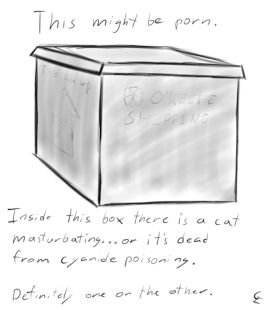 This might be porn.
This side up
O'KEEFE
SHIPPING
Inside this box there is a cat
masturbating...or it's dead
from cyanide poisoning.
Definitely one or the other.